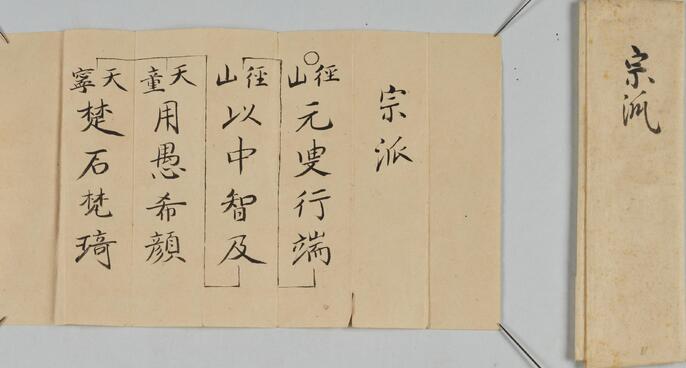 宗派
宗派
徑山
元叟行端
徑山
以中智及
天童
用愚希顔
天寧
楚石梵琦